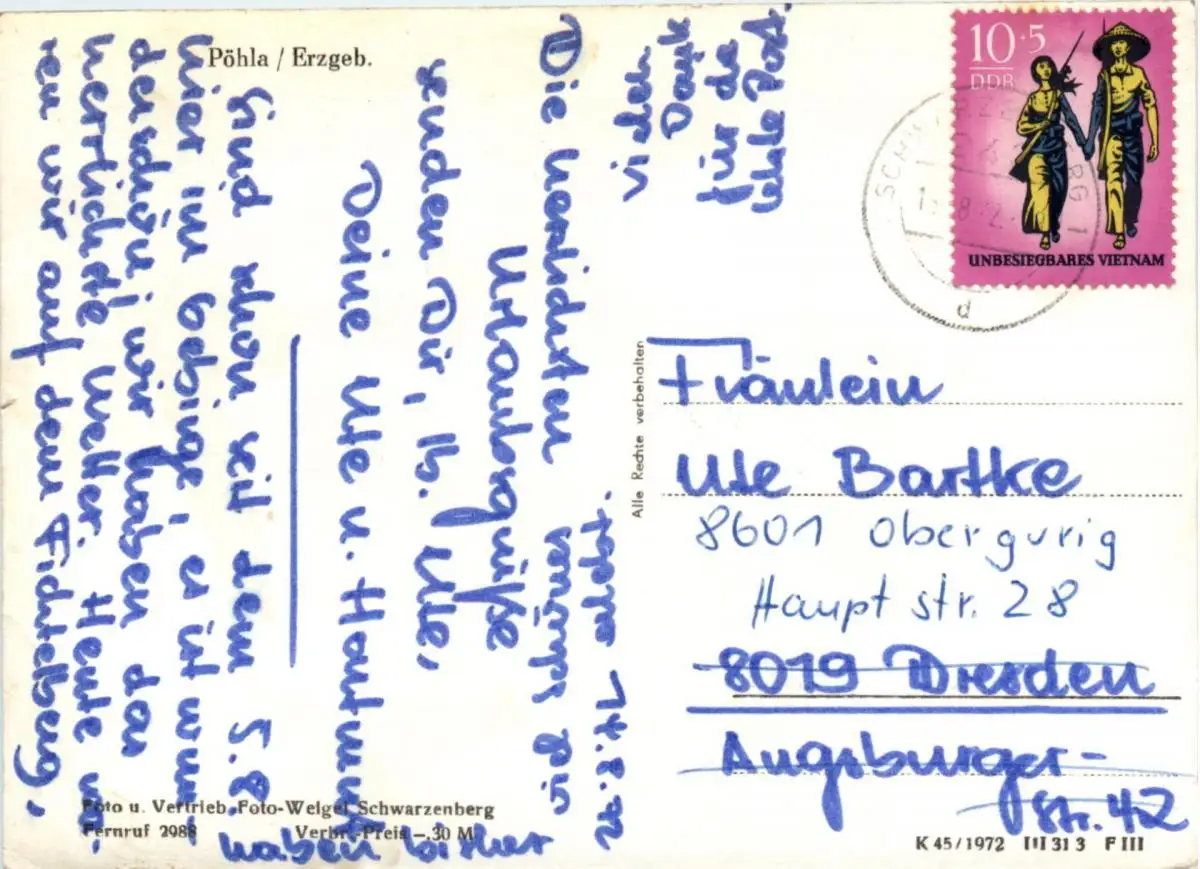 Pöhla / Erzgeb.
Die herzlichsten
Urlaubsgrüße
senden Dir, lb. Ute,
Deine Ute u. Hartmut
Sind schon seit dem 5.8.
hier im Gebirge, es ist wun-
derschön! Wir haben das
herrlichste Wetter. Heute wa-
ren wir auf dem Fichtelberg,
haben bisher
Pin
14.8.72
Vielen
Dank
für die
letzte Post!
10+5
DDR
UNBESIEGBARES VIETNAM
SCHWARZENBERG 1
d
Alle Rechte vorbehalten
Fräulein
Ute Bartke
8601 Obergurig
Hauptstr. 28
8019 Dresden
Augsburger-
Str. 42
Foto u. Vertrieb Foto-Weigel Schwarzenberg
Fernruf 2988 Verbr.-Preis -.30 M
K 45/1972 III 31 3 F III